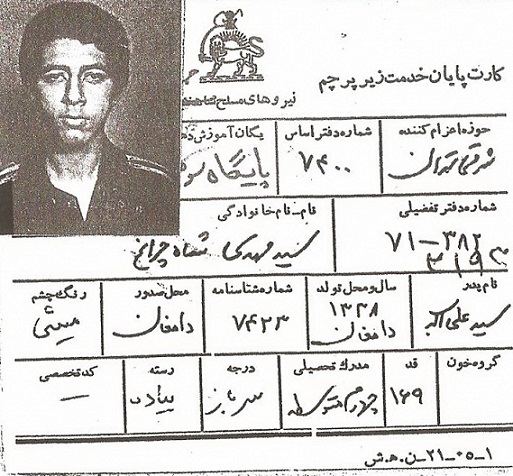 کارت پایان خدمت زیر پرچم
نیروهای مسلح
حوزه اعزام کننده
شماره دفتر اساس
یگان آموزش
شرق تهران
۷۴۰۰
پایگاه
شماره دفتر تفضیلی
نام_نام خانوادگی
۷۱-۳۸۲
سید مهدی شاه چراغ
نام پدر
سال و محل تولد
شماره شناسنامه
محل صدور
رنگ چشم
سید علی اکبر
۱۳۳۸
دامغان
۷۴۲۳
دامغان
میشی
گروه خون
قد
مدرک تحصیلی
درجه
رسته
کد تخصصی
۱۶۹
چهارم متوسطه
سرباز
پیاده
۱_۰۵_۲۱_ن.ه.ش